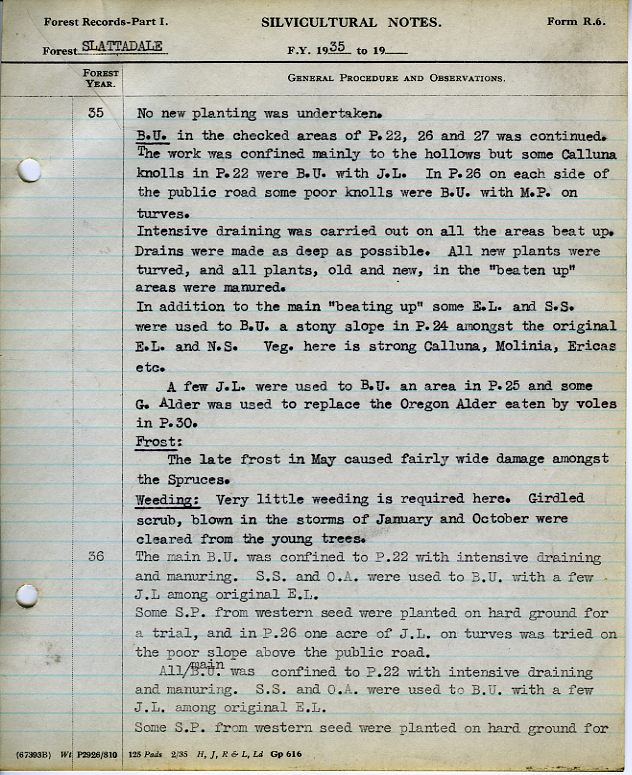 Forest Records-Part I. SILVICULTURAL NOTES. Form R.6.
Forest SLATTADALE F.Y. 1935 to 19
FOREST YEAR. GENERAL PROCEDURE AND OBSERVATIONS.
35 No new planting was undertaken.
B.U. in the checked areas of P.22, 26 and 27 was continued.
The work was confined mainly to the hollows but some Calluna
knolls in P.22 were B.U. with J.L. In P.26 on each side of
the public road some poor knolls were B.U. with M.P. on
turves.
Intensive draining was carried out on all the areas beat up.
Drains were made as deep as possible. All new plants were
turved, and all plants, old and new, in the "beaten up"
areas were manured.
In addition to the main "beating up" some E.L. and S.S.
were used to B.U. a stony slope in P.24 amongst the original
E.L. and N.S. Veg. here is strong Calluna, Molinia, Ericas
etc.
A few J.L. were used to B.U. an area in P.25 and some
G. Alder was used to replace the Oregon Alder eaten by voles
in P.30.
Frost:
The late frost in May caused fairly wide damage amongst
the Spruces.
Weeding: Very little weeding is required here. Girdled
scrub, blown in the storms of January and October were
cleared from the young trees.
36 The main B.U. was confined to P.22 with intensive draining
and manuring. S.S. and O.A. were used to B.U. with a few
J.L among original E.L.
Some S.P. from western seed were planted on hard ground for
a trial, and in P.26 one acre of J.L. on turves was tried on
the poor slope above the public road.
All/main B.U. was confined to P.22 with intensive draining
and manuring. S.S. and O.A. were used to B.U. with a few
J.L. among original E.L.
Some S.P. from western seed were planted on hard ground for
(67393B) Wt P2926/810 125 Pads 2/35 H, J, R & L, Ld Gp 616